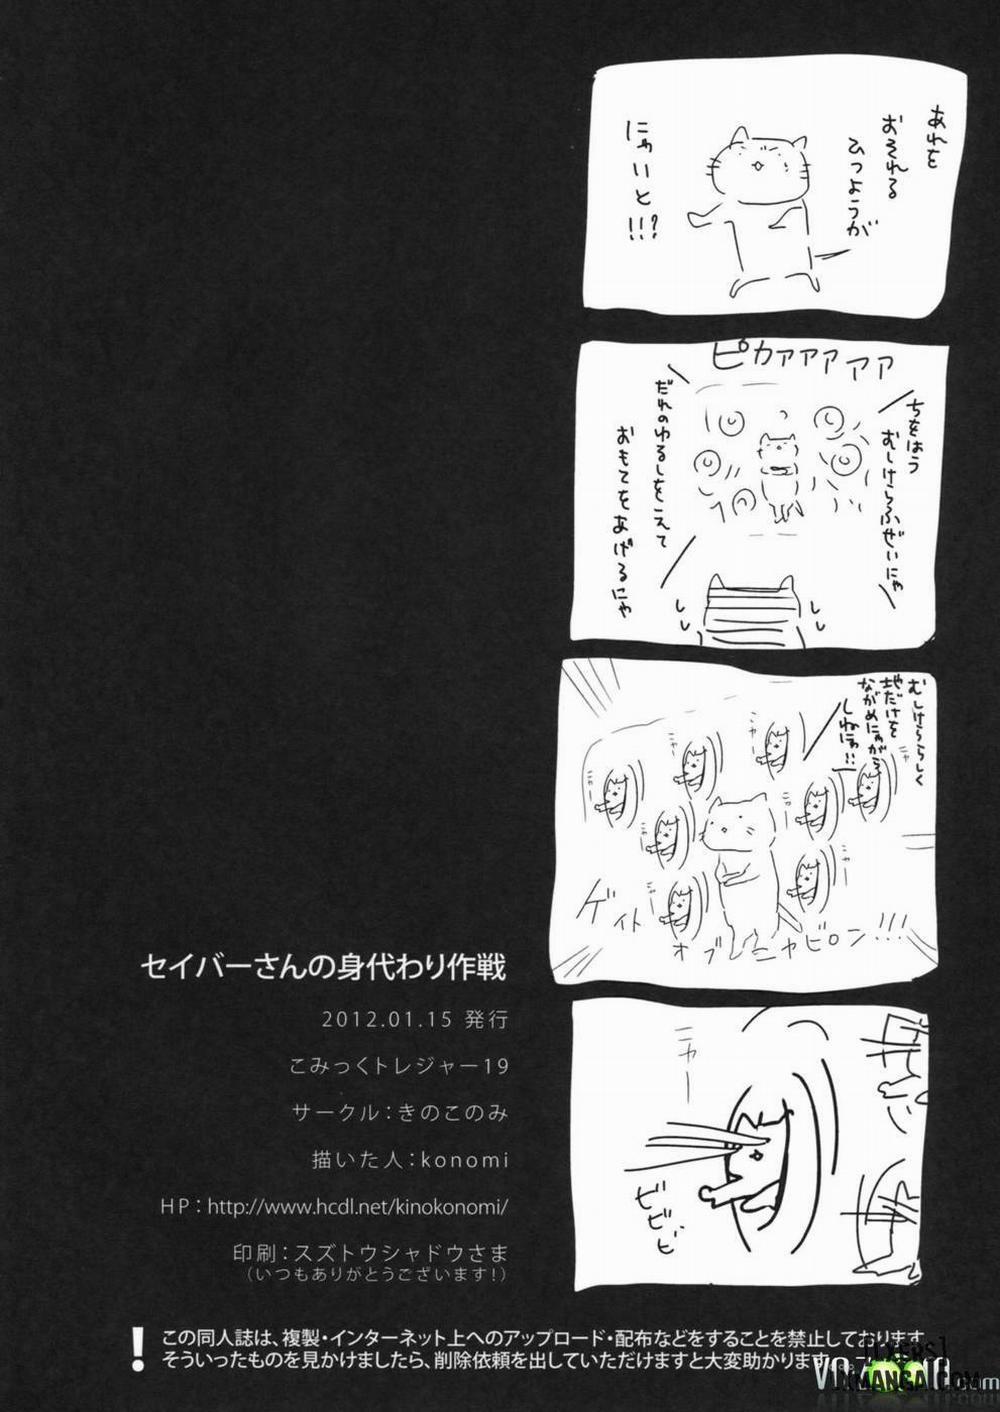 あれを
おそれる
ひつようが
にゃいと!!!?
ピカァァァァァ
ちをはう
むしけらふぜいにゃ
だれのゆるしをこえて
おもてをあげるにゃ
むしけららしく
地だけを
ながめにゃがら
しねにゃ!!
ニャー
ニャー
ニャー
ニャー
ニャー
ニャー
ニャー
ニャー
ゲイト
オブニャビロン!!!
ニャー
ビビビ
セイバーさんの身代わり作戦
2012.01.15 発行
こみっくトレジャー19
サークル：きのこのみ
描いた人：konomi
HP：http://www.hcdl.net/kinokonomi/
印刷：スズトウシャドウさま
（いつもありがとうございます!）
! この同人誌は、複製・インターネット上へのアップロード・配布などをすることを禁止しております。
そういったものを見かけましたら、削除依頼を出していただけますと大変助かります。